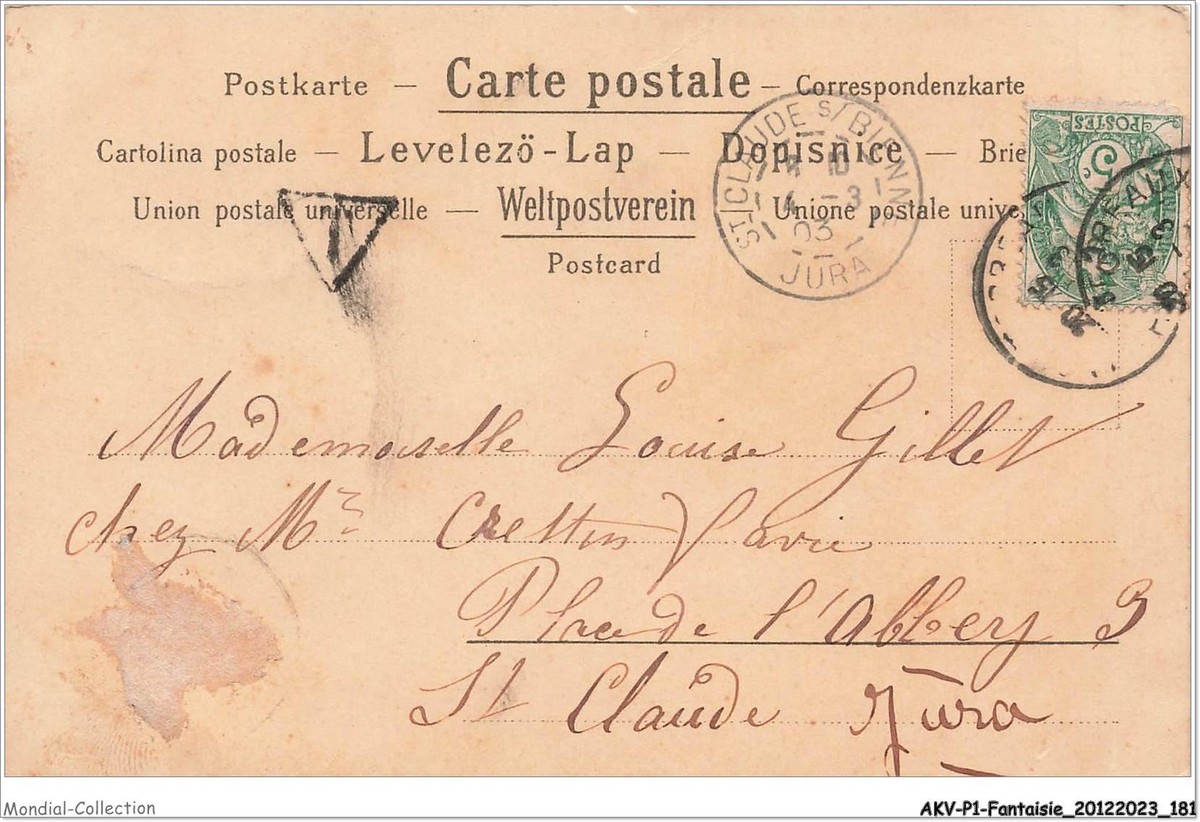 Postkarte — Carte postale — Correspondenzkarte
Cartolina postale — Levelezö-Lap — Dopisnice — Brie
Union postale universelle — Weltpostverein — Unione postale unive
Postcard
T
ST CLAUDE S/ BIENNE
4 - 3
03
JURA
POSTES
5c
Mademoiselle Louise Gillet
chez Mr Crettin
Place de l'Abbey 3
St Claude Jura
Mondial-Collection
AKV-P1-Fantaisie_20122023_181